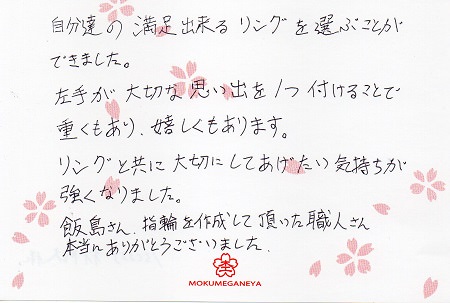 自分達の満足出来るリングを選ぶことが
できました。
左手が大切な思い出を1つ付けることで
重くもあり、嬉しくもあります。
リングと共に大切にしてあげたい気持ちが
強くなりました。
飯島さん、指輪を作成して頂いた職人さん
本当にありがとうございました。
MOKUMEGANEYA